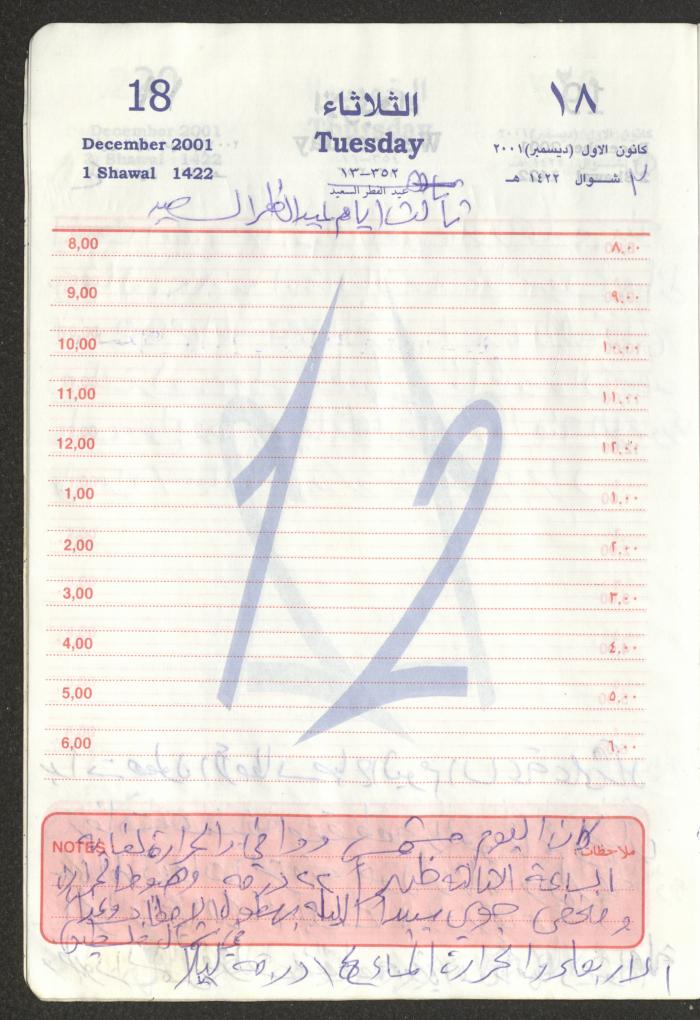 18 الثلاثاء ١٨
December 2001 Tuesday كانون الاول (ديسمبر) ٢٠٠١
1 Shawal 1422 ٣٥٢-١٣ ٣ شوال ١٤٢٢ هـ
عيد الفطر السعيد
ثالث ايام عيد الفطر السعيد
8,00 ٨,٠٠
9,00 ٩,٠٠
10,00 ١٠,٠٠
11,00 ١١,٠٠
12,00 ١٢,٠٠
1,00 ١,٠٠
2,00 ٢,٠٠
3,00 ٣,٠٠
4,00 ٤,٠٠
5,00 ٥,٠٠
6,00 ٦,٠٠
12
NOTES ملاحظات
كان اليوم مشمس ودافي والحرارة لغاية
الساعة الثالثة ظهرا ٢٢ درجة وهبوط الحرارة
ومنخفض جوي الليلة بهطول الامطار وغدا
الاربعاء والحرارة المساء ١٤ درجة ليلا